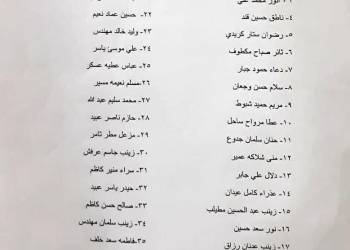 انور محمد علي
٤- ناطق حسين فند
٥- رضوان ستار كريدي
٦- ثائر صباح مكطوف
٧- دعاء حمود جبار
٨- سلام حسن وجعان
٩- مريم حميد شبوط
١٠- عطا مرواح ساحل
١١- حنان سلمان جدوع
١٢- منى شلاكه عمير
١٣- دلال علي جابر
١٤- عذراء كامل عيدان
١٥- زينب عبد الحسين مطيلب
١٦- نور سعد حسين
١٧- زينب عدنان رزاق
٢٢- حسين عماد نعيم
٢٣- وليد خالد مهندس
٢٤- علي موسى ياسر
٢٥- عباس عطيه عسكر
٢٦- مسلم نعيمه مسير
٢٧- محمد سليم عبد الله
٢٨- حازم ناصر عبيد
٢٩- مزعل مطر ثامر
٣٠- زينب جاسم عرفش
٣١- سراء منير كاظم
٣٢- حيدر ياسر عبيد
٣٣- صالح حسن كاظم
٣٤- زينب سلمان مهندس
٣٥- فاطمه سعد خلف